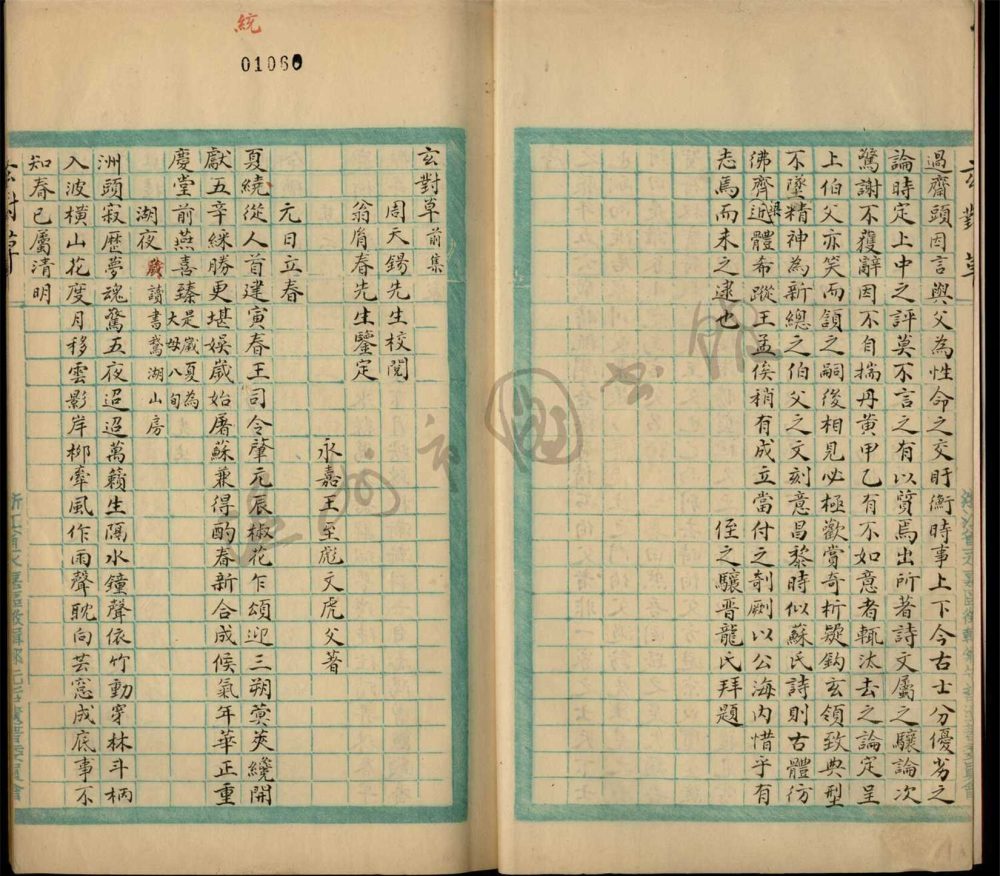 過齋頭因言與父為性命之交盱衡時事上下今古士分優劣之
論時定上中之評莫不言之有以質焉出所著詩文屬之驤論次
驚謝不獲辭因不自揣丹黃甲乙有不如意者輒汰去之論定呈
上伯父亦笑而頷之嗣後相見必極歡賞奇析疑鈎玄領致典型
不墜精神為新總之伯父之文刻意昌黎時似蘇氏詩則古體彷
彿齊梁近體希蹤王孟俟稍有成立當付之剞劂以公海内惜乎有
志焉而未之逮也 侄之驤晋龍氏拜題
統
01060
玄對草前集
周天錫先生校閱
翁膺春先生鑒定
永嘉王至彪文虎父著
元日立春
夏繞從人首建寅春王司令肇元辰椒花乍頌迎三朔蓂莢纔開
獻五辛綵勝更堪娛歲始屠蘇兼得酌春新合成候氣年華正重
慶堂前燕喜臻是歲夏為大母八旬
湖夜 歲讀書鵞湖山房
洲頭寂歷夢魂驚五夜迢迢萬籟生隔水鐘聲依竹動穿林斗柄
入波橫山花度月移雲影岸柳牽風作雨聲耽向芸窓成底事不
知春已屬清明
玄對草